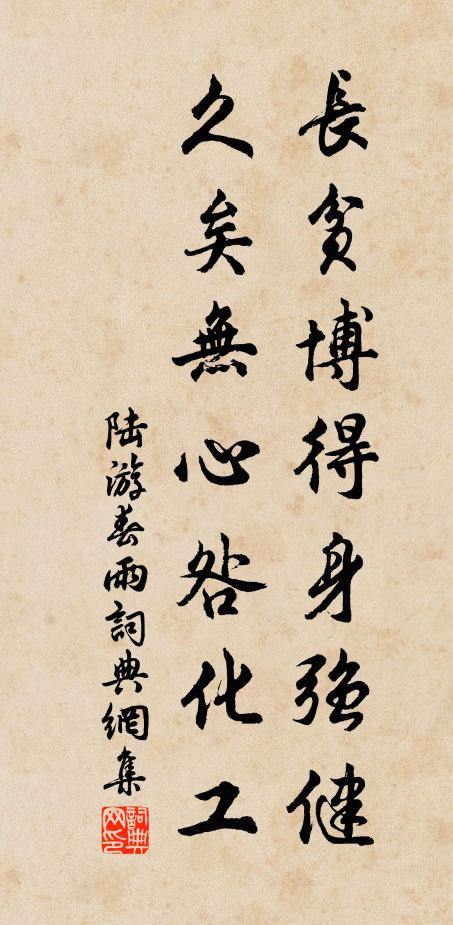 長貧博得身強健
久矣無心咎化工
陆游春雨詞典網集
詞典網印